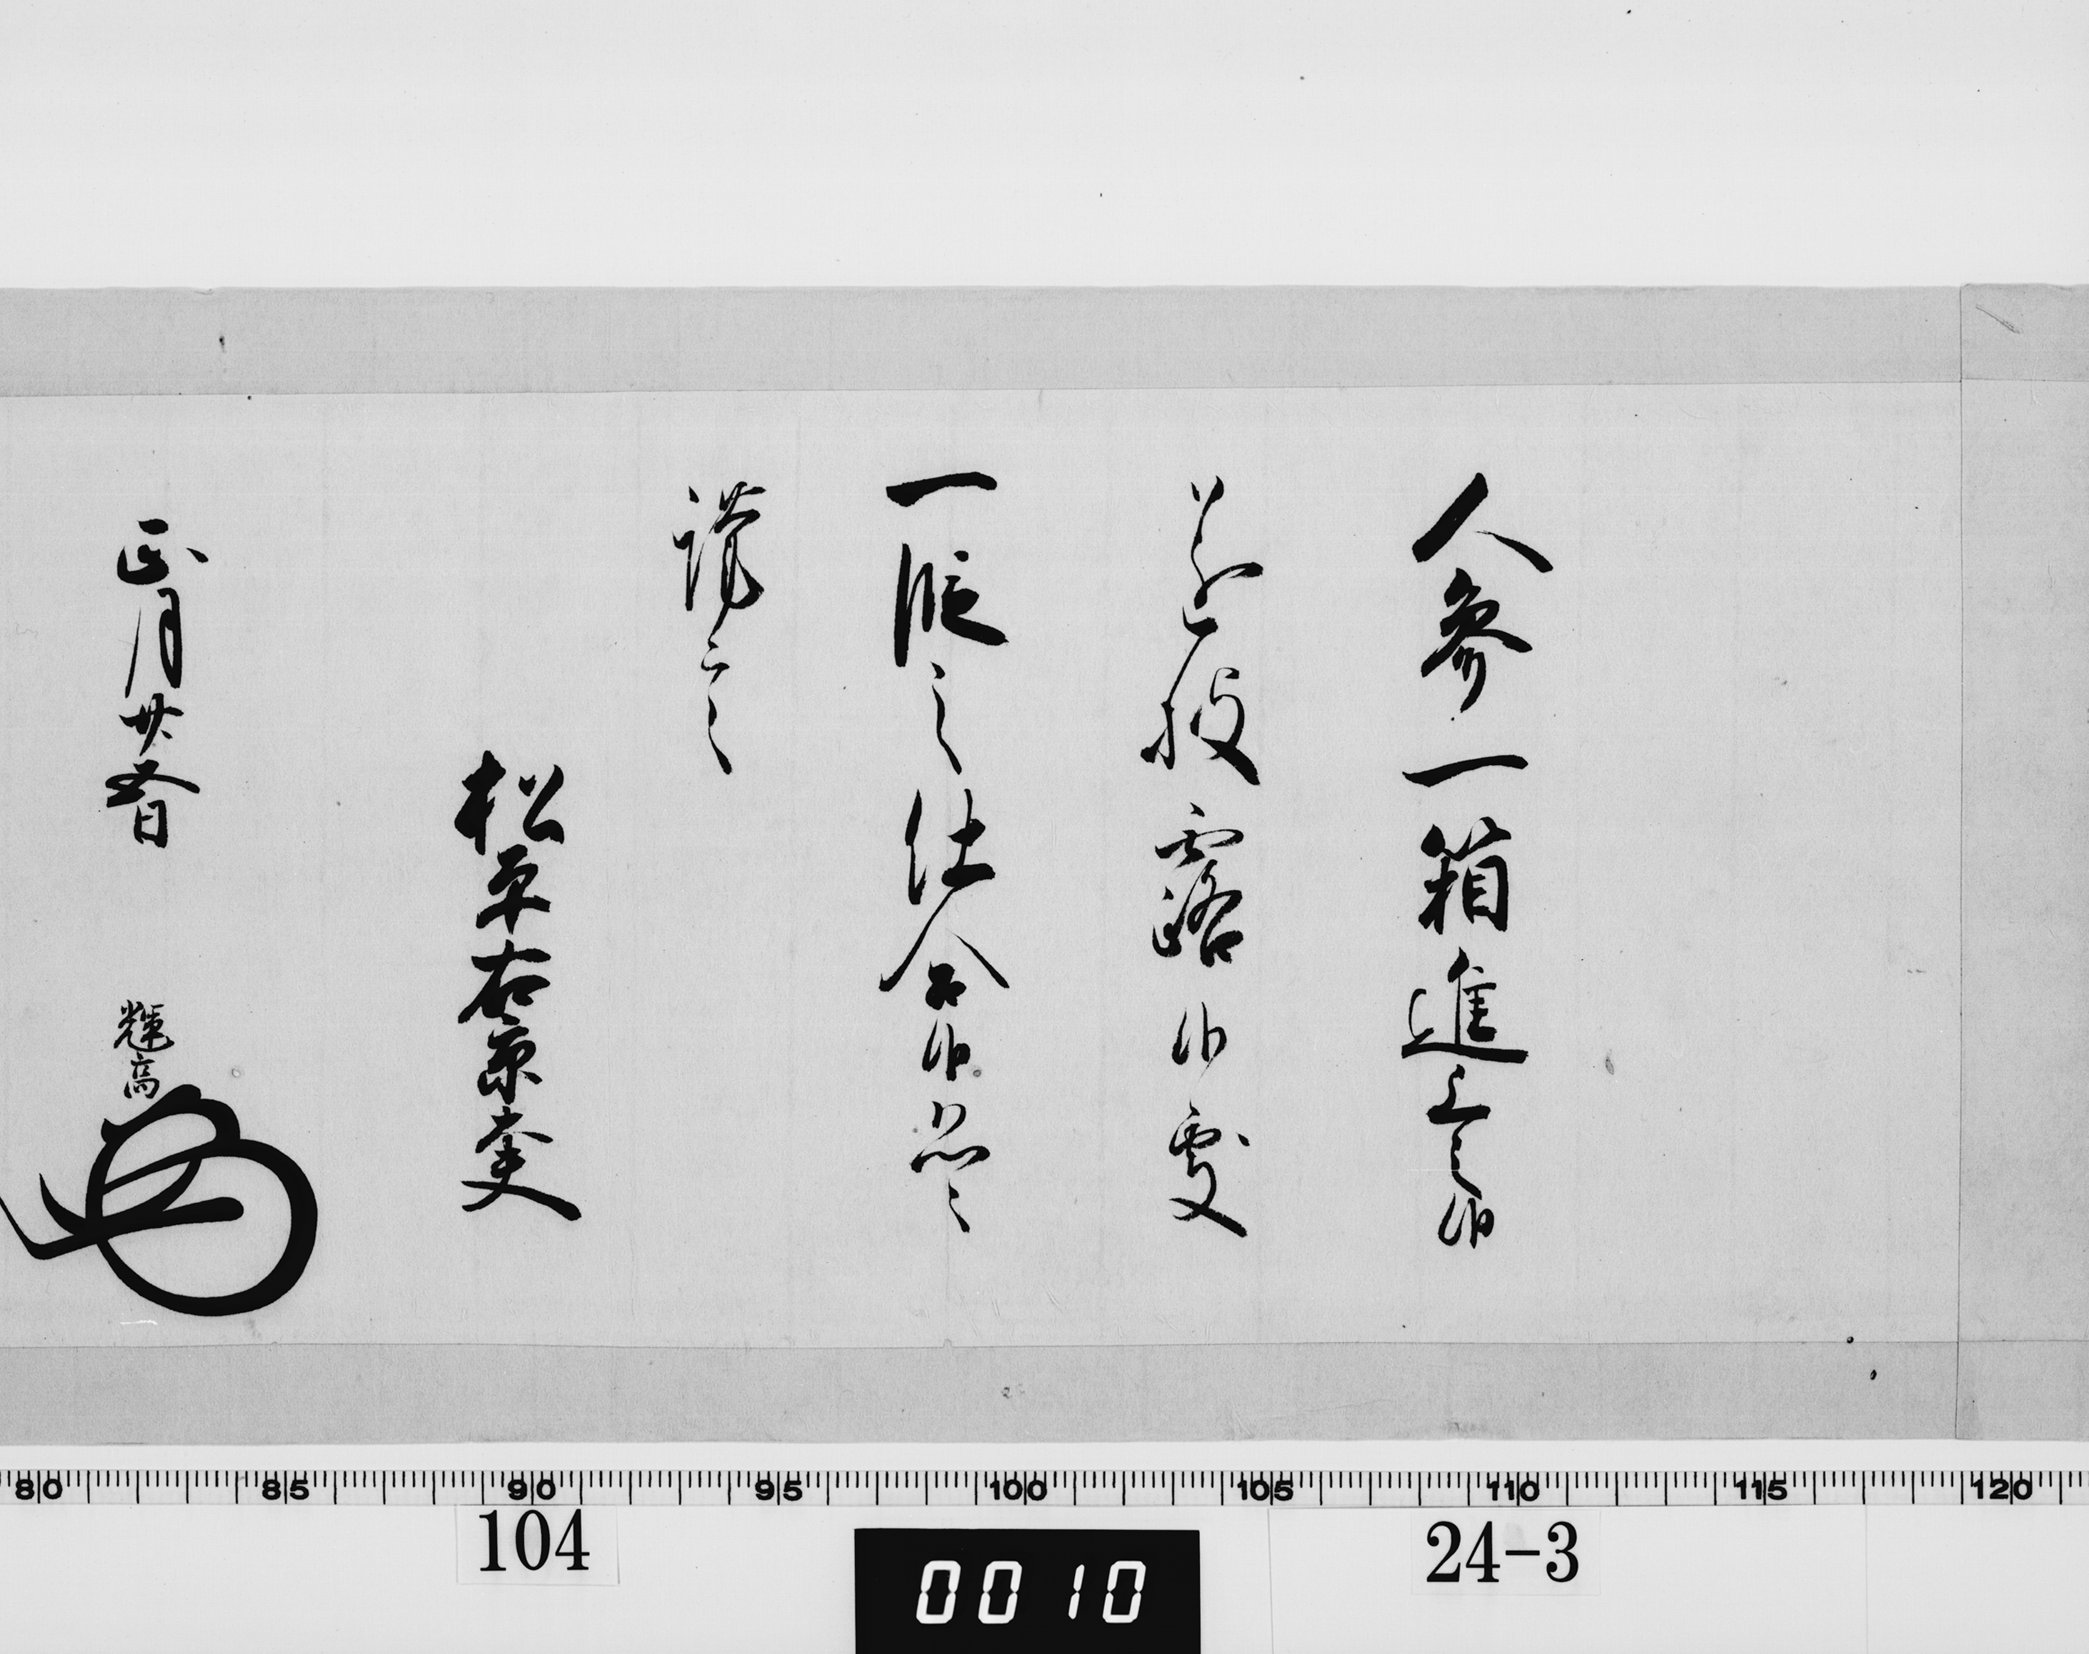 人参一箱進上之候
遂披露候処
一段之仕合候恐々
謹言
松平右京大夫
正月廿五日
輝高
80 85 90 95 100 105 110 115 120
104
0010
24-3